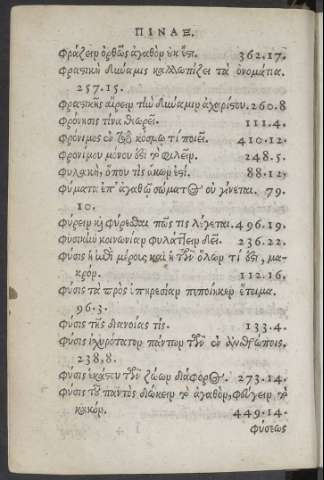 ΠΙΝΑΞ.
φράζειν ὀρθῶς ἀγαθὸν οὐκ ἔστι. 362.17.
φραστικὴ δύναμις καλλωπίζει τὰ ὀνόματα.
257.15.
φραστικῆς αἴρειν τὴν δύναμιν ἀχαρίστου. 260.8
φρόνησις τίνα θεωρεῖ. 111.4.
φρόνιμος ἐν τῷ κόσμῳ τί ποιεῖ. 410.12.
φρονίμου μόνου ἐστὶ τὸ φιλεῖν. 248.5.
φυλακὴ, ὅπου τὶς ἄκων ἐστί. 88.12.
φύματα ἐπ' ἀγαθῷ σώματος οὐ γίνεται. 79.
10.
φύρειν καὶ φύρεσθαι πῶς τις λέγεται. 496.19.
φυσικὴν κοινωνίαν φυλάττειν δεῖ. 236.22.
φύσις ἡ μὲν μέρους καὶ ἡ τῶν ὅλων τί ἐστι, μα-
κρόν. 112.16.
φύσις τὰ πρὸς ὑπηρεσίαν πεποίηκεν ἕτοιμα.
96.3.
φύσις τῆς διανοίας τίς. 133.4.
φύσις ἰσχυρότατον πάντων τῶν ἐν ἀνθρώποις.
238.8.
φύσις ἑκάστου τῶν ζώων διάφορος. 273.14.
φύσις τοῦ παντὸς διώκειν τὸ ἀγαθὸν, φεύγειν τὸ
κακόν. 449.14.
φύσεως